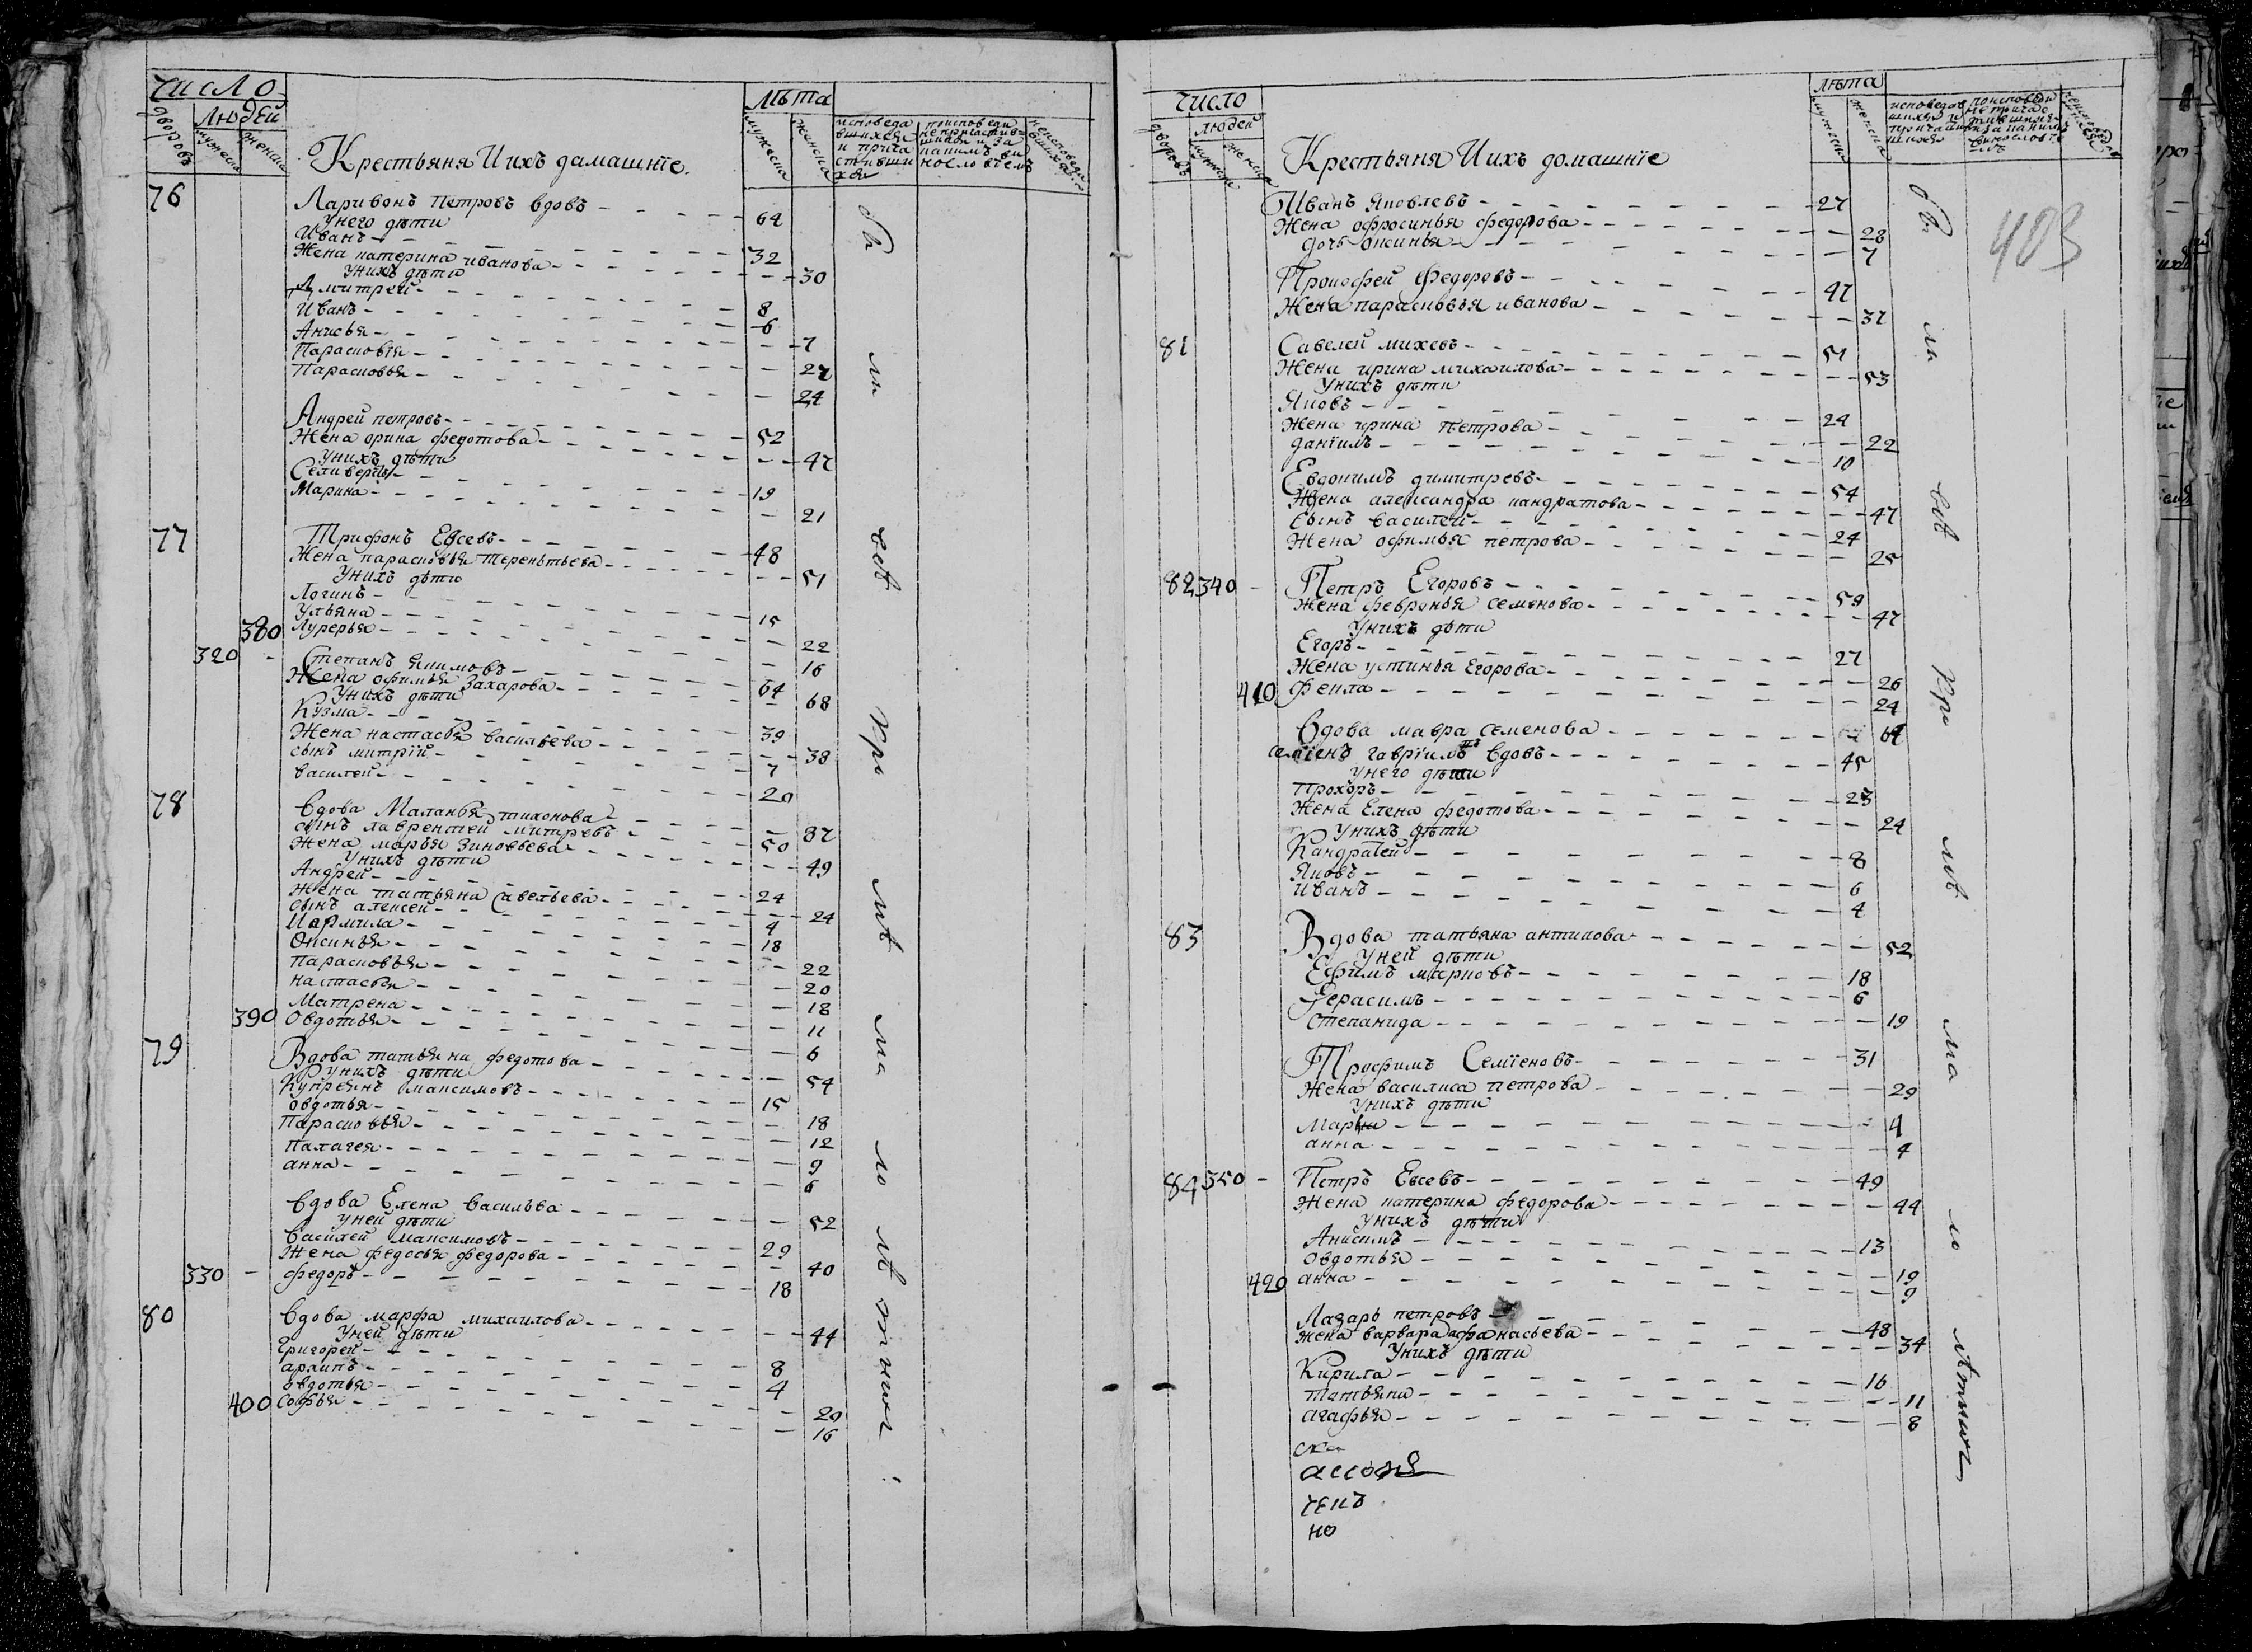 число
людей
дворовъ
мужеска
женска
лѣта
мужеска
женска
исповеда
вшихся
и прича
стивши
хся
поисповеди
непричастив-
шихся и за
какимъ ви
нословіемъ
неисповеда
вшихся
Крестьяня Иихъ дамашнїе.
76
Ларивонъ Петровъ вдовъ - 64
Унего дѣти
Иванъ - 32
Жена катерина иванова - 30
Унихъ дѣти
Дмитрей - 8
Иванъ - 6
Анисья - 7
Парасковїя - 27
Парасковья - 24
Андрей петровъ - 52
Жена орина федотова - 47
Унихъ дѣти
Селиверстъ - 19
Марина - 21
77
Трифонъ Евсевъ - 48
Жена парасковья терентьева - 51
Унихъ дѣти
Логинъ - 15
Ульяна - 22
380 Лукерья - 16
320 - Степанъ Якимовъ - 64
Жена офимья Захарова - 68
Унихъ дѣти
Кузма - 39
Жена настасья васильева - 38
сынъ митрїй - 7
василей - 20
78
Вдова Маланья тихонова - 87
сынъ лаврентей митревъ - 50
Жена марья Зиновьева - 49
Унихъ дѣти
Андрей - 24
Жена татьяна Савельева - 24
сынъ алексей - 4
Иармила - 18
Оксинья - 22
парасковья - 20
настасья - 18
Матрена - 11
390 Овдотья - 6
79
Вдова татьяна федотова - 54
Унихъ дѣти
Купреянъ максимовъ - 15
овдотья - 18
Парасковья - 12
палагея - 9
анна - 6
вдова Елена васильва - 52
Уней дѣти
василей максимовъ - 29
Жена федосья федорова - 40
330 - федоръ - 18
80
Вдова марфа михаилова - 44
Уней дѣти
Григорей - 8
архипъ - 4
овдотья - 20
400 софья - 16
бы ли всѣ при чѣ
число
людей
дворовъ
мужеска
женска
лѣта
мужеска
женска
403
Крестьяня Иихъ домашнїе
Иванъ Яковлевъ - 27
Жена офросинья федорова - 28
дочь оксинья - 7
Прокофей Федоровъ - 47
Жена парасковья иванова - 37
81
Савелей михевъ - 51
Жена ирина михаилова - 53
Унихъ дѣти
Яковъ - 24
Жена ирина петрова - 22
данїилъ - 10
Евдокимъ димитревъ - 54
Жена александра кандратова - 47
сынъ василей - 24
Жена офимья петрова - 25
82 340 - Петръ Егоровъ - 59
Жена февронья семенова - 47
Унихъ дѣти
Егоръ - 27
Жена устинья Егорова - 26
410 фекла - 24
Вдова мавра семенова - 64
семїенъ гаврїилъ вдовъ - 45
унего дѣти
Прохоръ - 23
Жена Елена федотова - 24
Унихъ дѣти
Кандратей - 8
Яковъ - 6
Иванъ - 4
83
Вдова татьяна антипова - 52
Уней дѣти
Ефимъ марковъ - 18
Герасимъ - 6
степанида - 19
Трофимъ Семїеновъ - 31
Жена василиса петрова - 29
Унихъ дѣти
Марья - 4
анна - 4
84 350 - Петръ Евсевъ - 49
Жена катерина федорова - 44
Унихъ дѣти
Анисимъ - 13
Овдотья - 19
420 анна - 9
Лазарь петровъ - 48
Жена варвара афанасьева - 34
Унихъ дѣти
Кирила - 16
татьяна - 11
агафья - 8
но